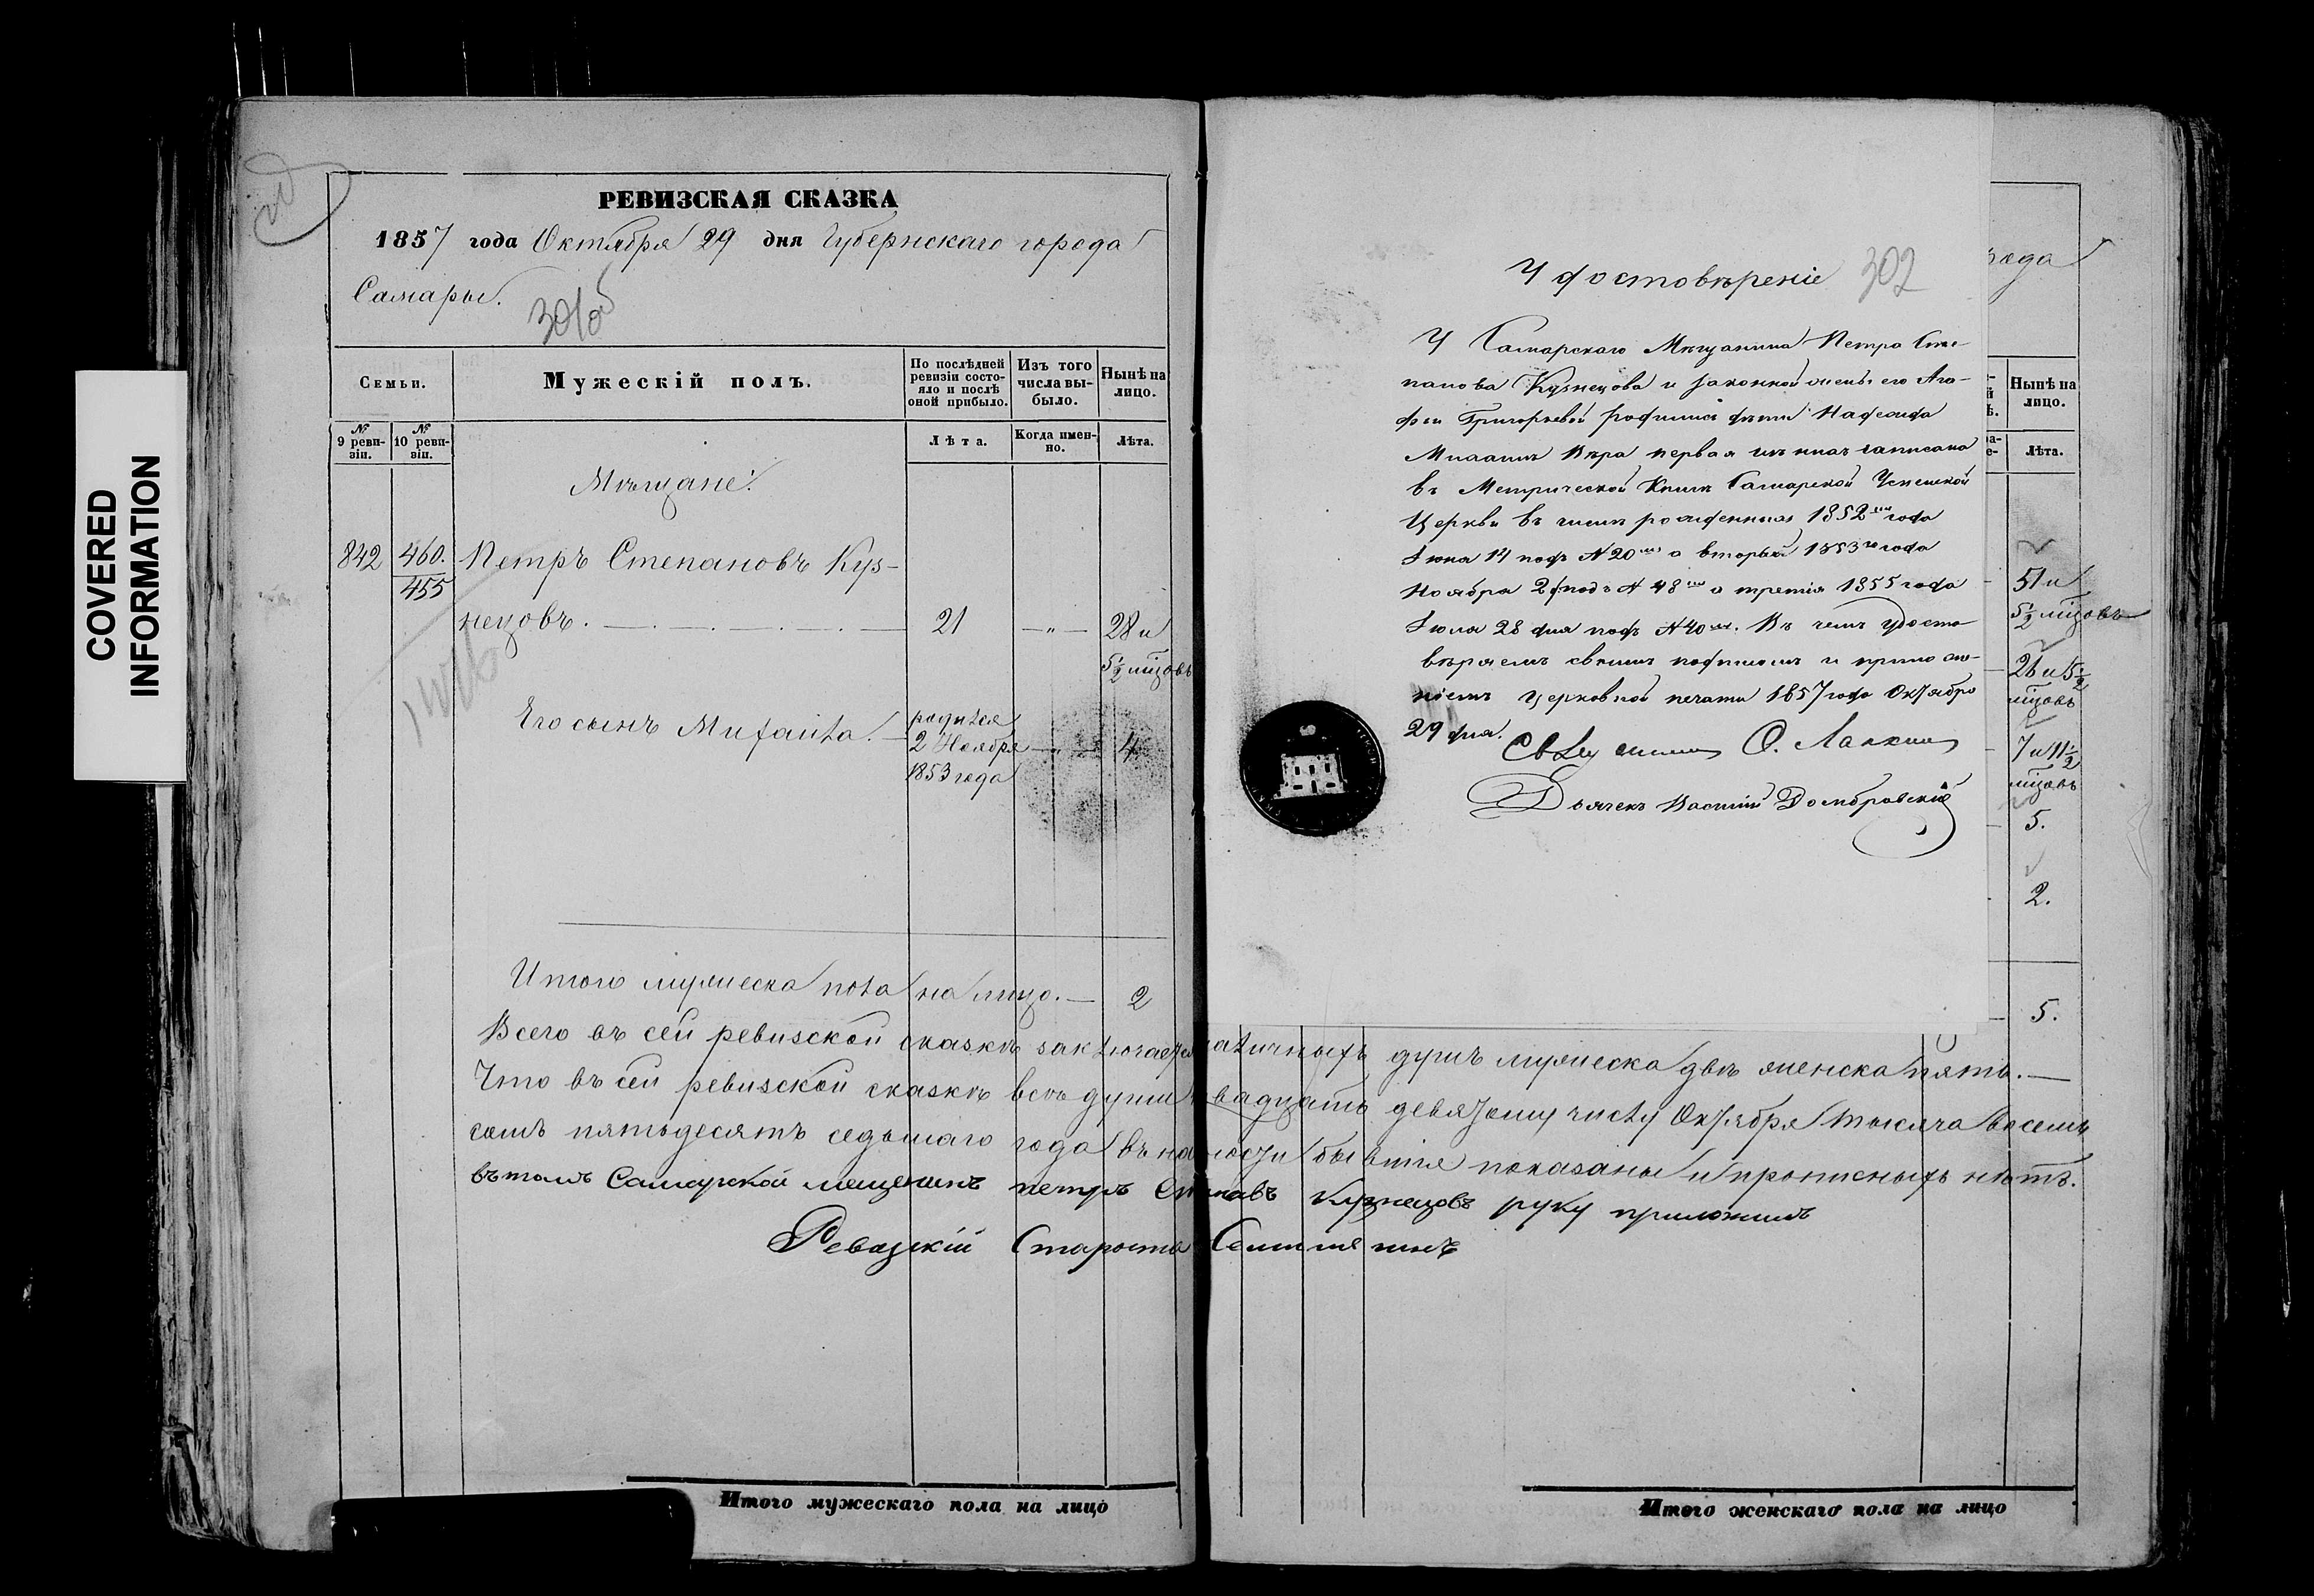 COVERED
INFORMATION
РЕВИЗСКАЯ СКАЗКА
1857 года Октября 29 дня Губернскаго города
Самары.
301об
Семьи.
Мужескій полъ.
По послѣдней ревизіи состояло и послѣ оной прибыло.
Изъ того числа выбыло.
Нынѣ на лицо.
№ 9 ревизіи.
№ 10 ревизіи.
Лѣта.
Когда именно.
Лѣта.
Мѣщане.
842 460. Петръ Степановъ Куз-
455
нецовъ. 21 — „ — 28 и
5½ мѣсцовъ
Его сынъ Михаила. родился
2 Ноября — „ — 4
1853 года
Итого мужеска пола на лицо. — 2
302
Удостовѣреніе
У Самарскаго Мѣщанина Петра Сте-
панова Кузнецова и законной жены его Ага-
фьи Григорьевой родились дѣти Надежда
Михаилъ Вѣра первая изъ нихъ записана
въ Метрической Книгѣ Самарской Церкви въ числѣ рожденныхъ 1852го года
Іюня 14 подъ N 20мъ а вторый 1853го года
Ноября 2 подъ N 48мъ а третія 1855 года
Іюля 28 дня подъ N 40мъ. Въ чемъ удосто-
вѣряемъ своимъ подписомъ и приложе-
ніемъ церковной печати 1857 года Октября
29 дня.
Священникъ
Дьячекъ Домбровскій
рода
Нынѣ на лицо.
Лѣта.
51 и
5½ мѣсцовъ
26 и 5½
мѣсцовъ
7 и 11½
мѣсцовъ
5.
2.
5.
Всего въ сей ревизской сказкѣ заключается наличныхъ душъ мужеска двѣ женска пять. —
Что въ сей ревизской сказкѣ всѣ души двадцать девятому числу Октября тысяча восемь
сотъ пятьдесятъ седьмаго года въ налости бывшія показаны и прописныхъ нѣтъ.
въ томъ Самарской мещенинъ петръ Кузнецовъ руку приложилъ
Ревизкій Староста
Итого мужескаго пола на лицо
Итого женскаго пола на лицо